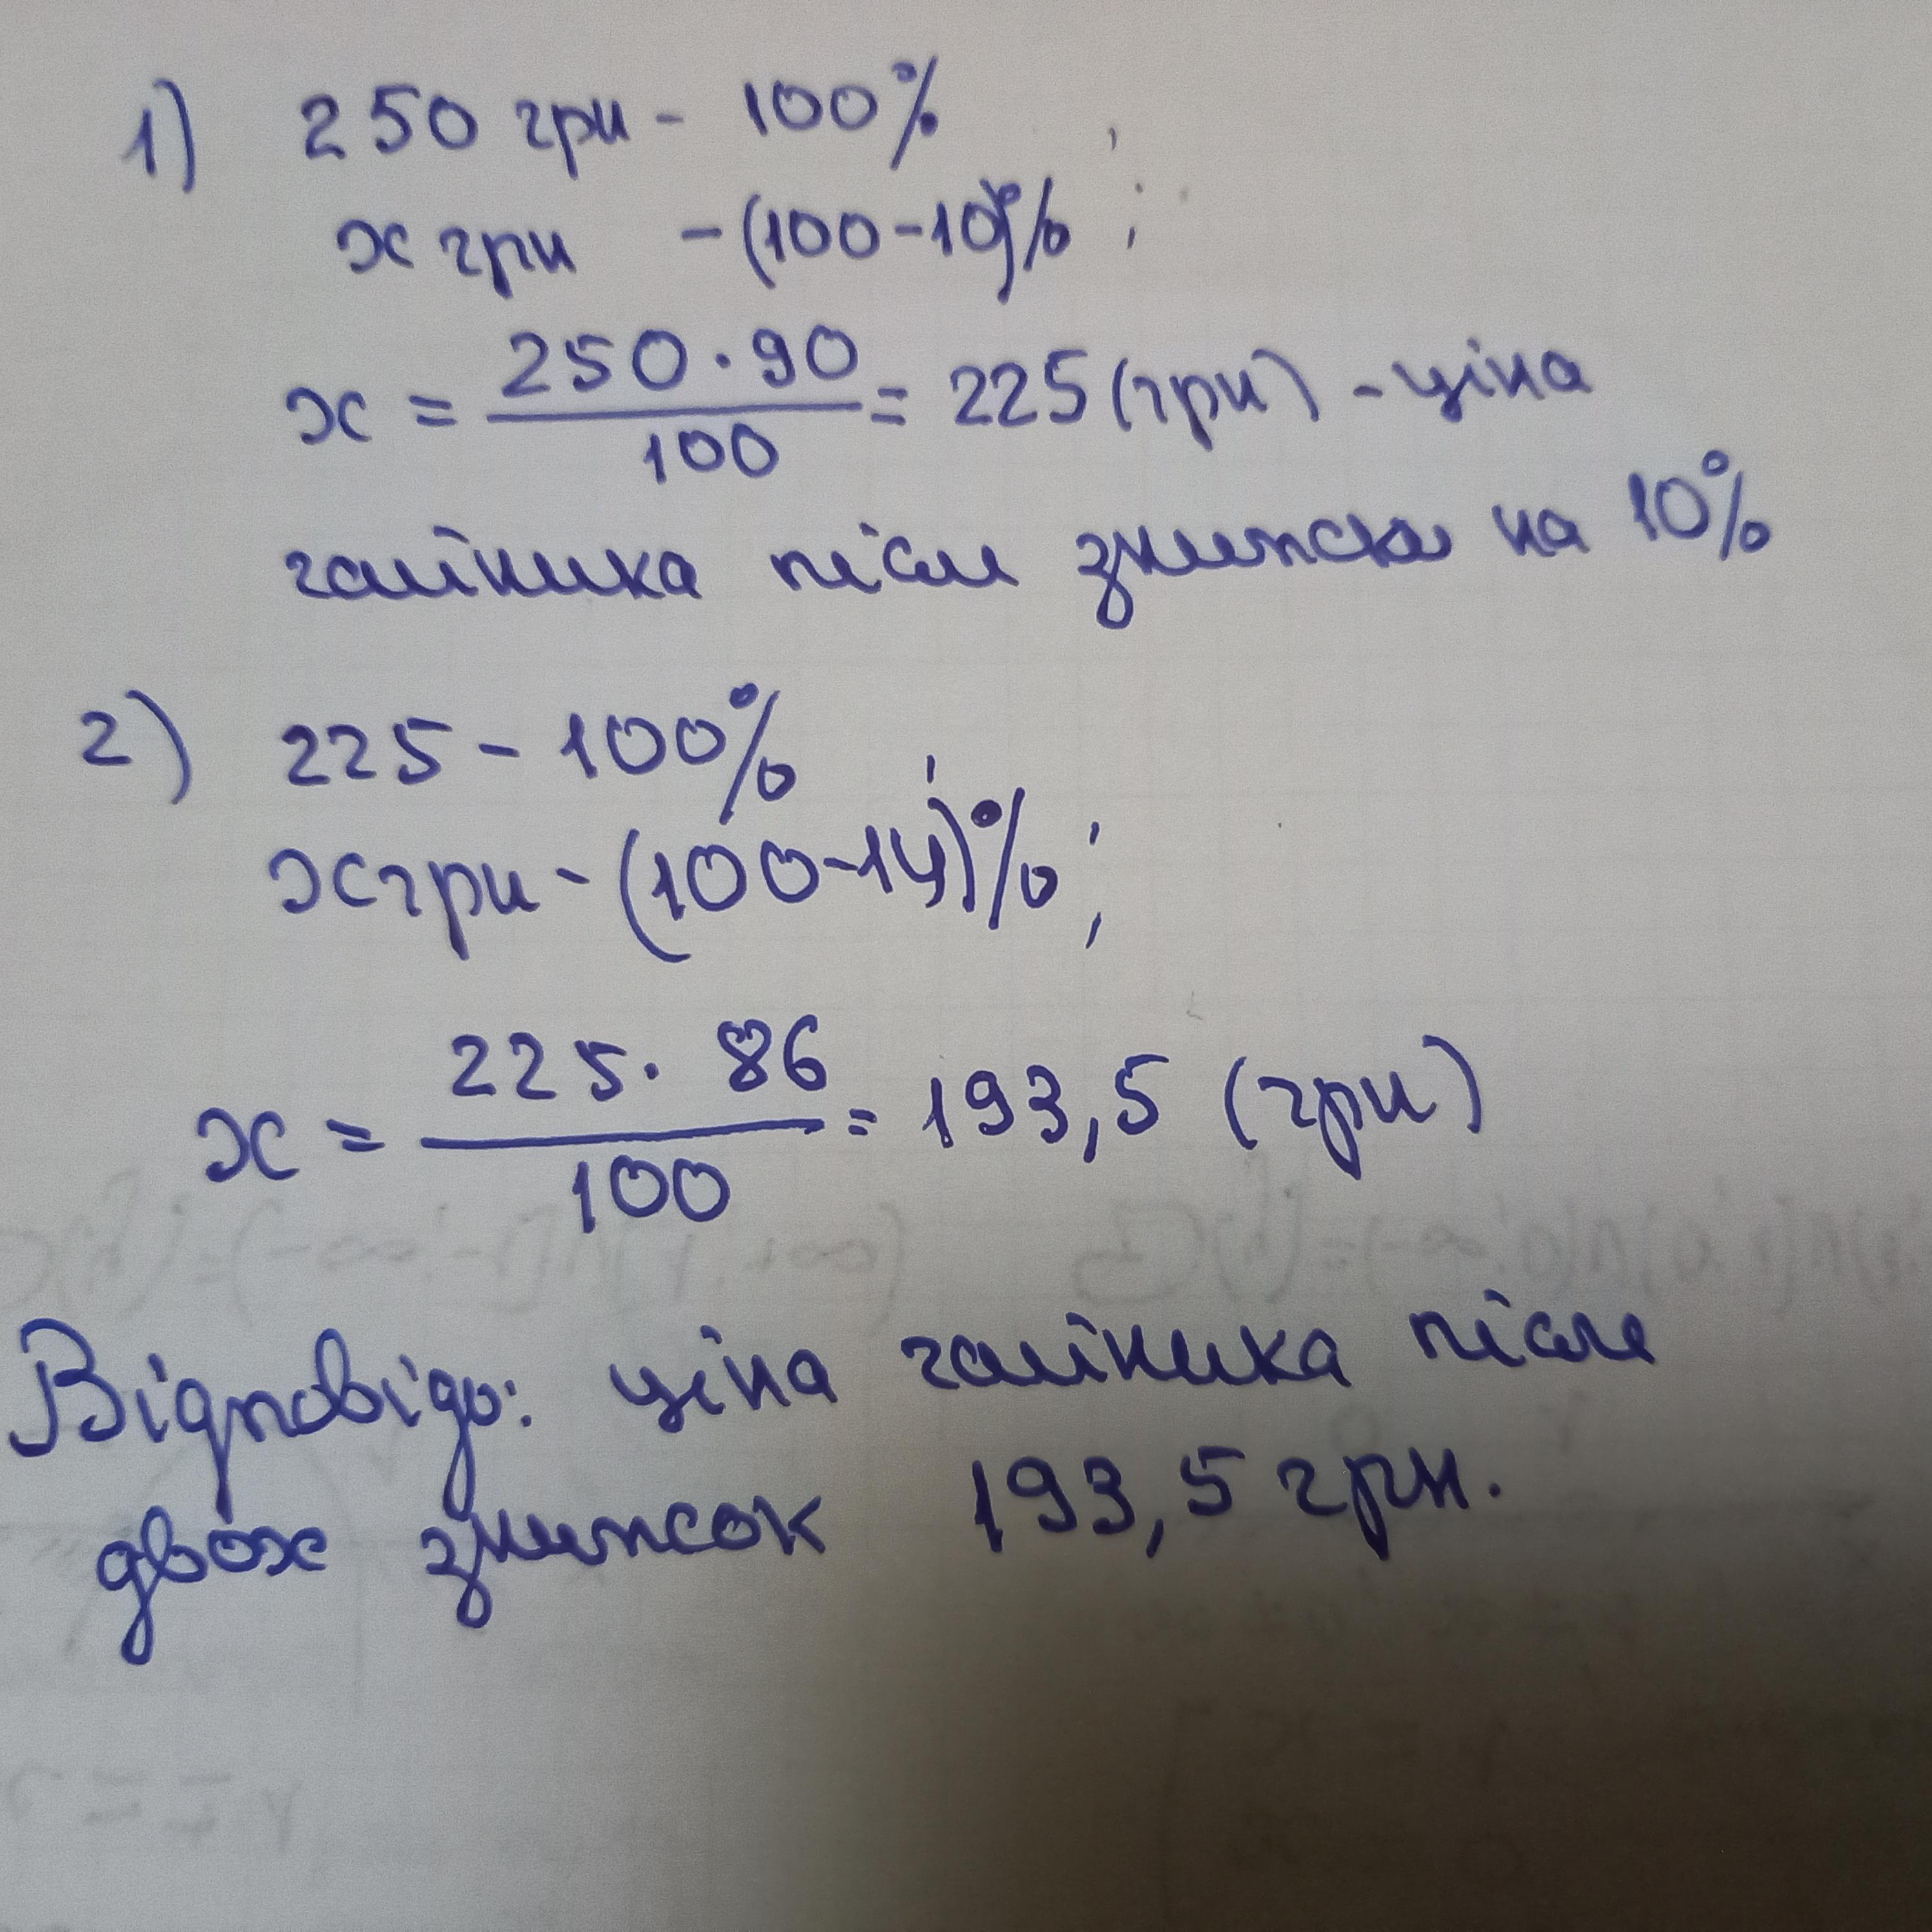 1) 250 грн - 100%
x грн - (100-10)% ;
x = 250 · 90 / 100 = 225 (грн) - ціна
чайника після знижки на 10%
2) 225 - 100%
x грн - (100-14)% ;
x = 225 · 86 / 100 = 193,5 (грн)
Відповідь: ціна чайника після
двох знижок 193,5 грн.